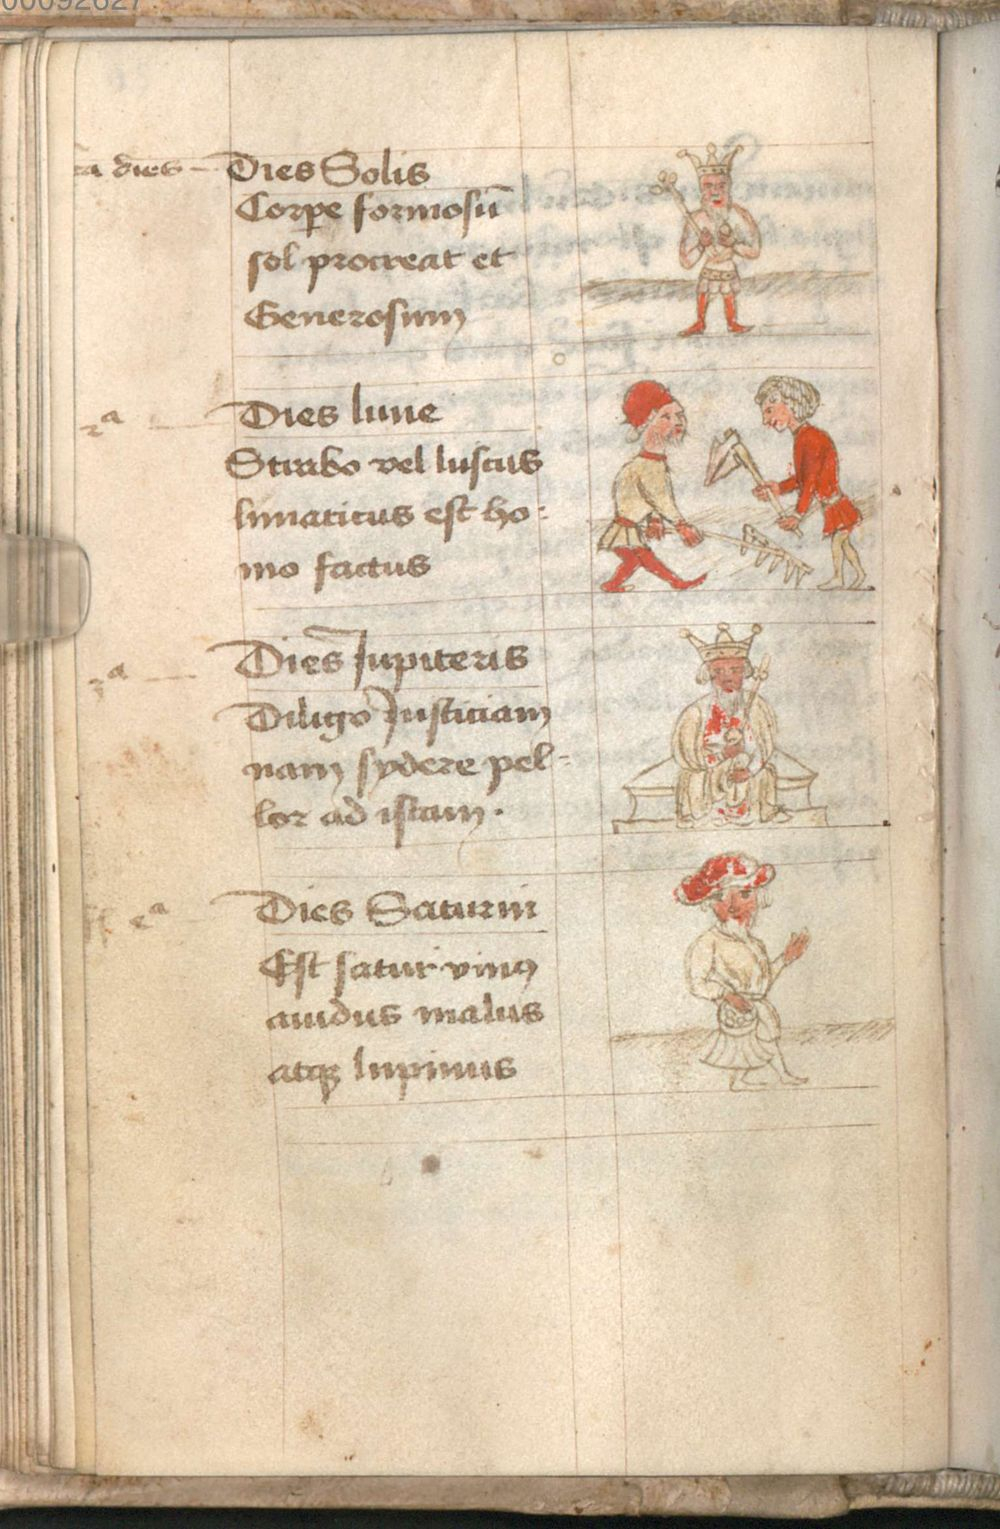 00092627
a dies – Dies Solis
Corpe formosū
sol procreat et
Generosum
2ᵃ Dies lune
Strabo vel luscus
lunaticus est ho:
mo factus
3ᵃ Dies Jupiteris
Diligo Justiciam
nam sydere pel-
lor ad istam.
Dies Saturni
Est satur vinꝰ
auidus malus
atqꝫ lupinus